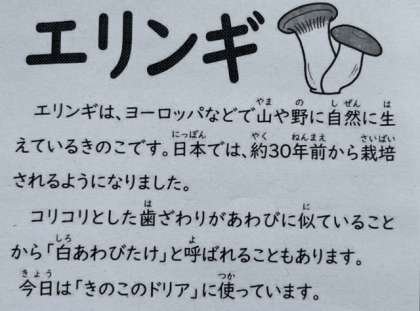 エリンギ
エリンギは、ヨーロッパなどで山や野に自然に生
えているきのこです。日本では、約30年前から栽培
されるようになりました。
コリコリとした歯ざわりがあわびに似ていること
から「白あわびたけ」と呼ばれることもあります。
今日は「きのこのドリア」に使っています。